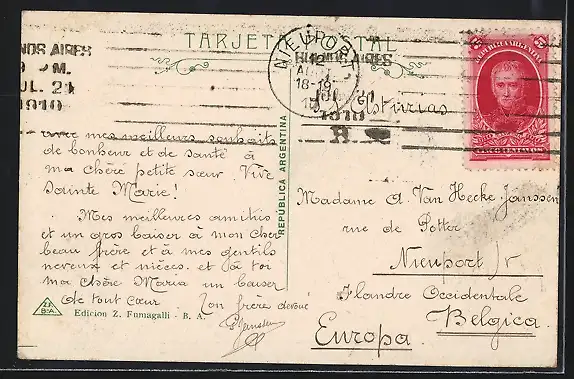 TARJETA POSTAL
BUENOS AIRES
JUL. 21
1910
NIEUPORT
12
AOUT
18-19
BUENOS AIRES
1910
H
Asturias
REPUBLICA ARGENTINA
5
5
avec mes meilleurs souhaits
de bonheur et de santé à
ma chère petite sœur. Vive
Sainte Marie!
Mes meilleures amitiés
et un gros baiser à mon cher
beau frère et à mes gentils
neveux et nièces. et à toi
ma chère Maria un baiser
de tout cœur
Ton frère dévoué
Janssen
Madame A. Van Hecke-Janssen
rue de Potter
Nieuport
Flandre Occidentale
Belgica
Europa
REPÚBLICA ARGENTINA
Z.F.
B.A.
Edicion Z. Fumagalli - B. A.